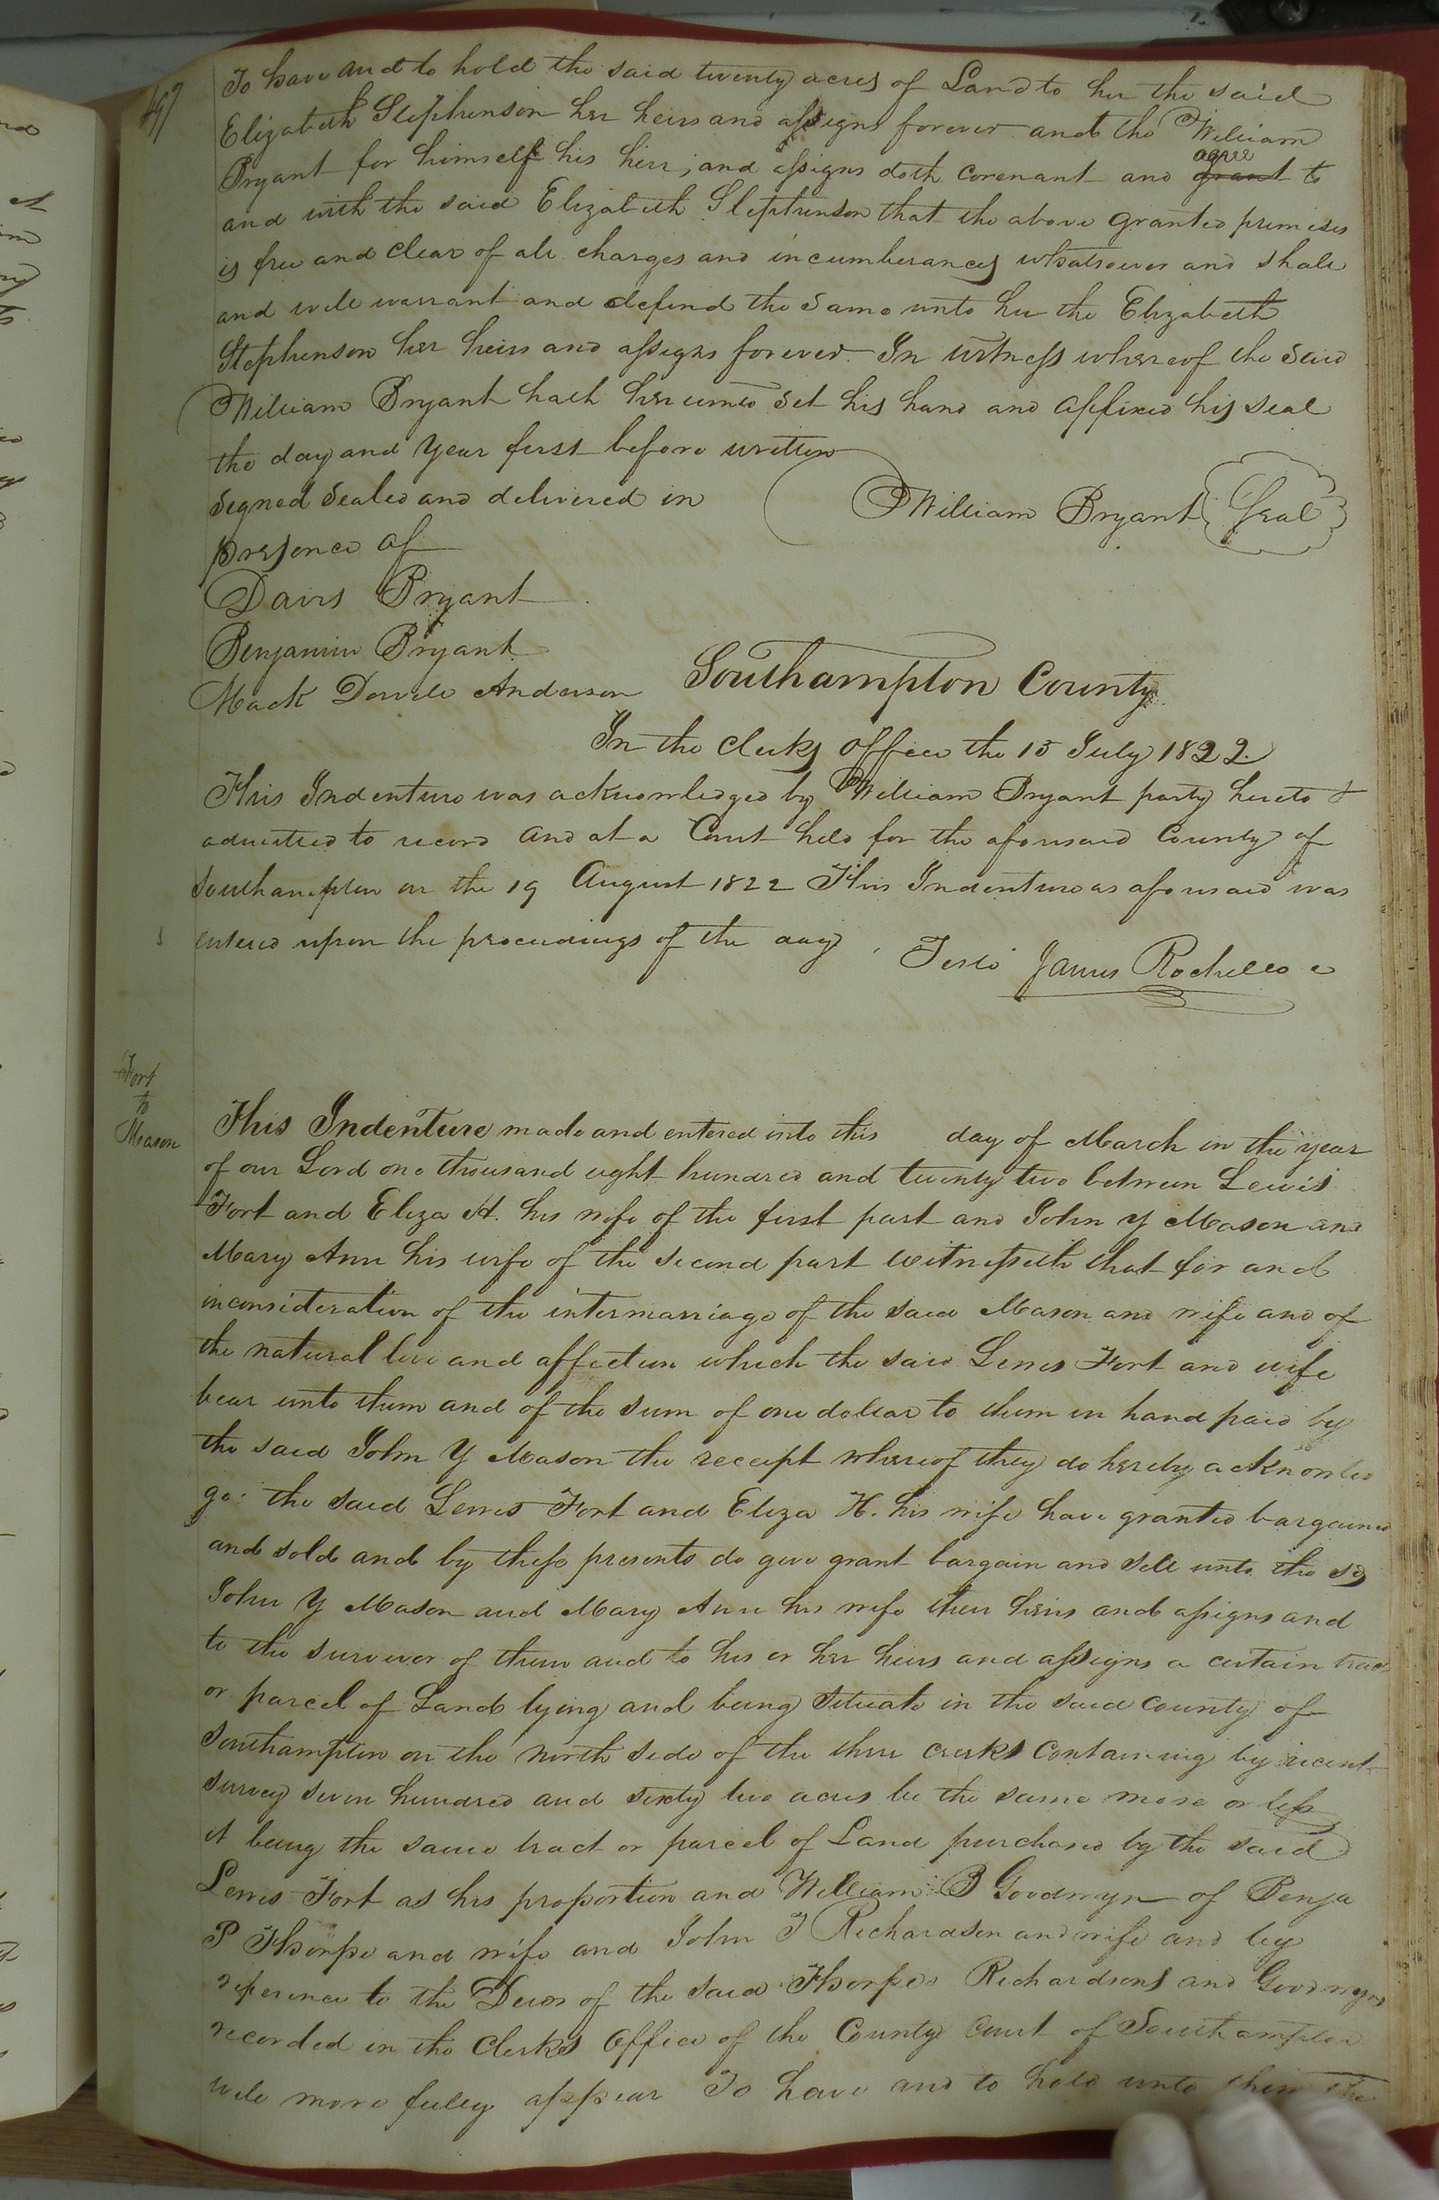 497
To have and to hold the said twenty acres of Land to her the said
Elizabeth Stephenson her heirs and assigns forever and the William
Bryant for himself his hiers, and assigns doth covenant and agree grant to
and with the said Elizabeth Stephenson that the above granted premises
is free and clear of all charges and incumberances whatsoever and shall
and will warrant and defend the same unto her the Elizabeth
Stephenson her heirs and assigns forever In witness whereof the said
William Bryant hath hereunto set his hand and affixed his seal
the day and year first before written
Signed Sealed and delivered in
William Bryant Seal
presence of
Davis Bryant
Benjamin Bryant
Mack Dowell Anderson
Southampton County
In the Clerks office the 15 July 1822
This Indenture was acknowledged by William Bryant party hereto &
admitted to record and at a Court held for the aforesaid County of
Southampton on the 19 August 1822 This Indenture as aforesaid was
entered upon the proceedings of the day. Teste James Rochelle c
Fort
to
Mason
This Indenture made and entered into this day of March in the year
of our Lord one thousand eight hundred and twenty two between Lewis
Fort and Eliza H. his wife of the first part and John Y Mason and
Mary Ann his wife of the second part witnesseth that for and
inconsideration of the intermarriage of the said Mason and wife and of
the natural love and affection which the said Lewis Fort and wife
bear unto them and of the sum of one dollar to them in hand paid by
the said John Y Mason the receipt whereof they do hereby acknowled
ge: the said Lewis Fort and Eliza H. his wife have granted bargained
and sold and by these presents do give grant bargain and sell unto the sd
John Y Mason and Mary Ann his wife their heirs and assigns and
to the surviver of them and to his or her heirs and assigns a certain tract
or parcel of Land lying and being situate in the said county of
Southampton on the north side of the three creeks containing by recent
survey seven hundred and sixty two acres be the same more or less
it being the same tract or parcel of Land purchased by the said
Lewis Fort as his proportion and William B Goodwyn of Benja
P Thorpe and wife and John T Richardson and wife and by
reference to the Deeds of the said Thorpes Richardsons and Goodwyns
recorded in the Clerks office of the County court of Southampton
will more fully appear To have and to hold unto them the